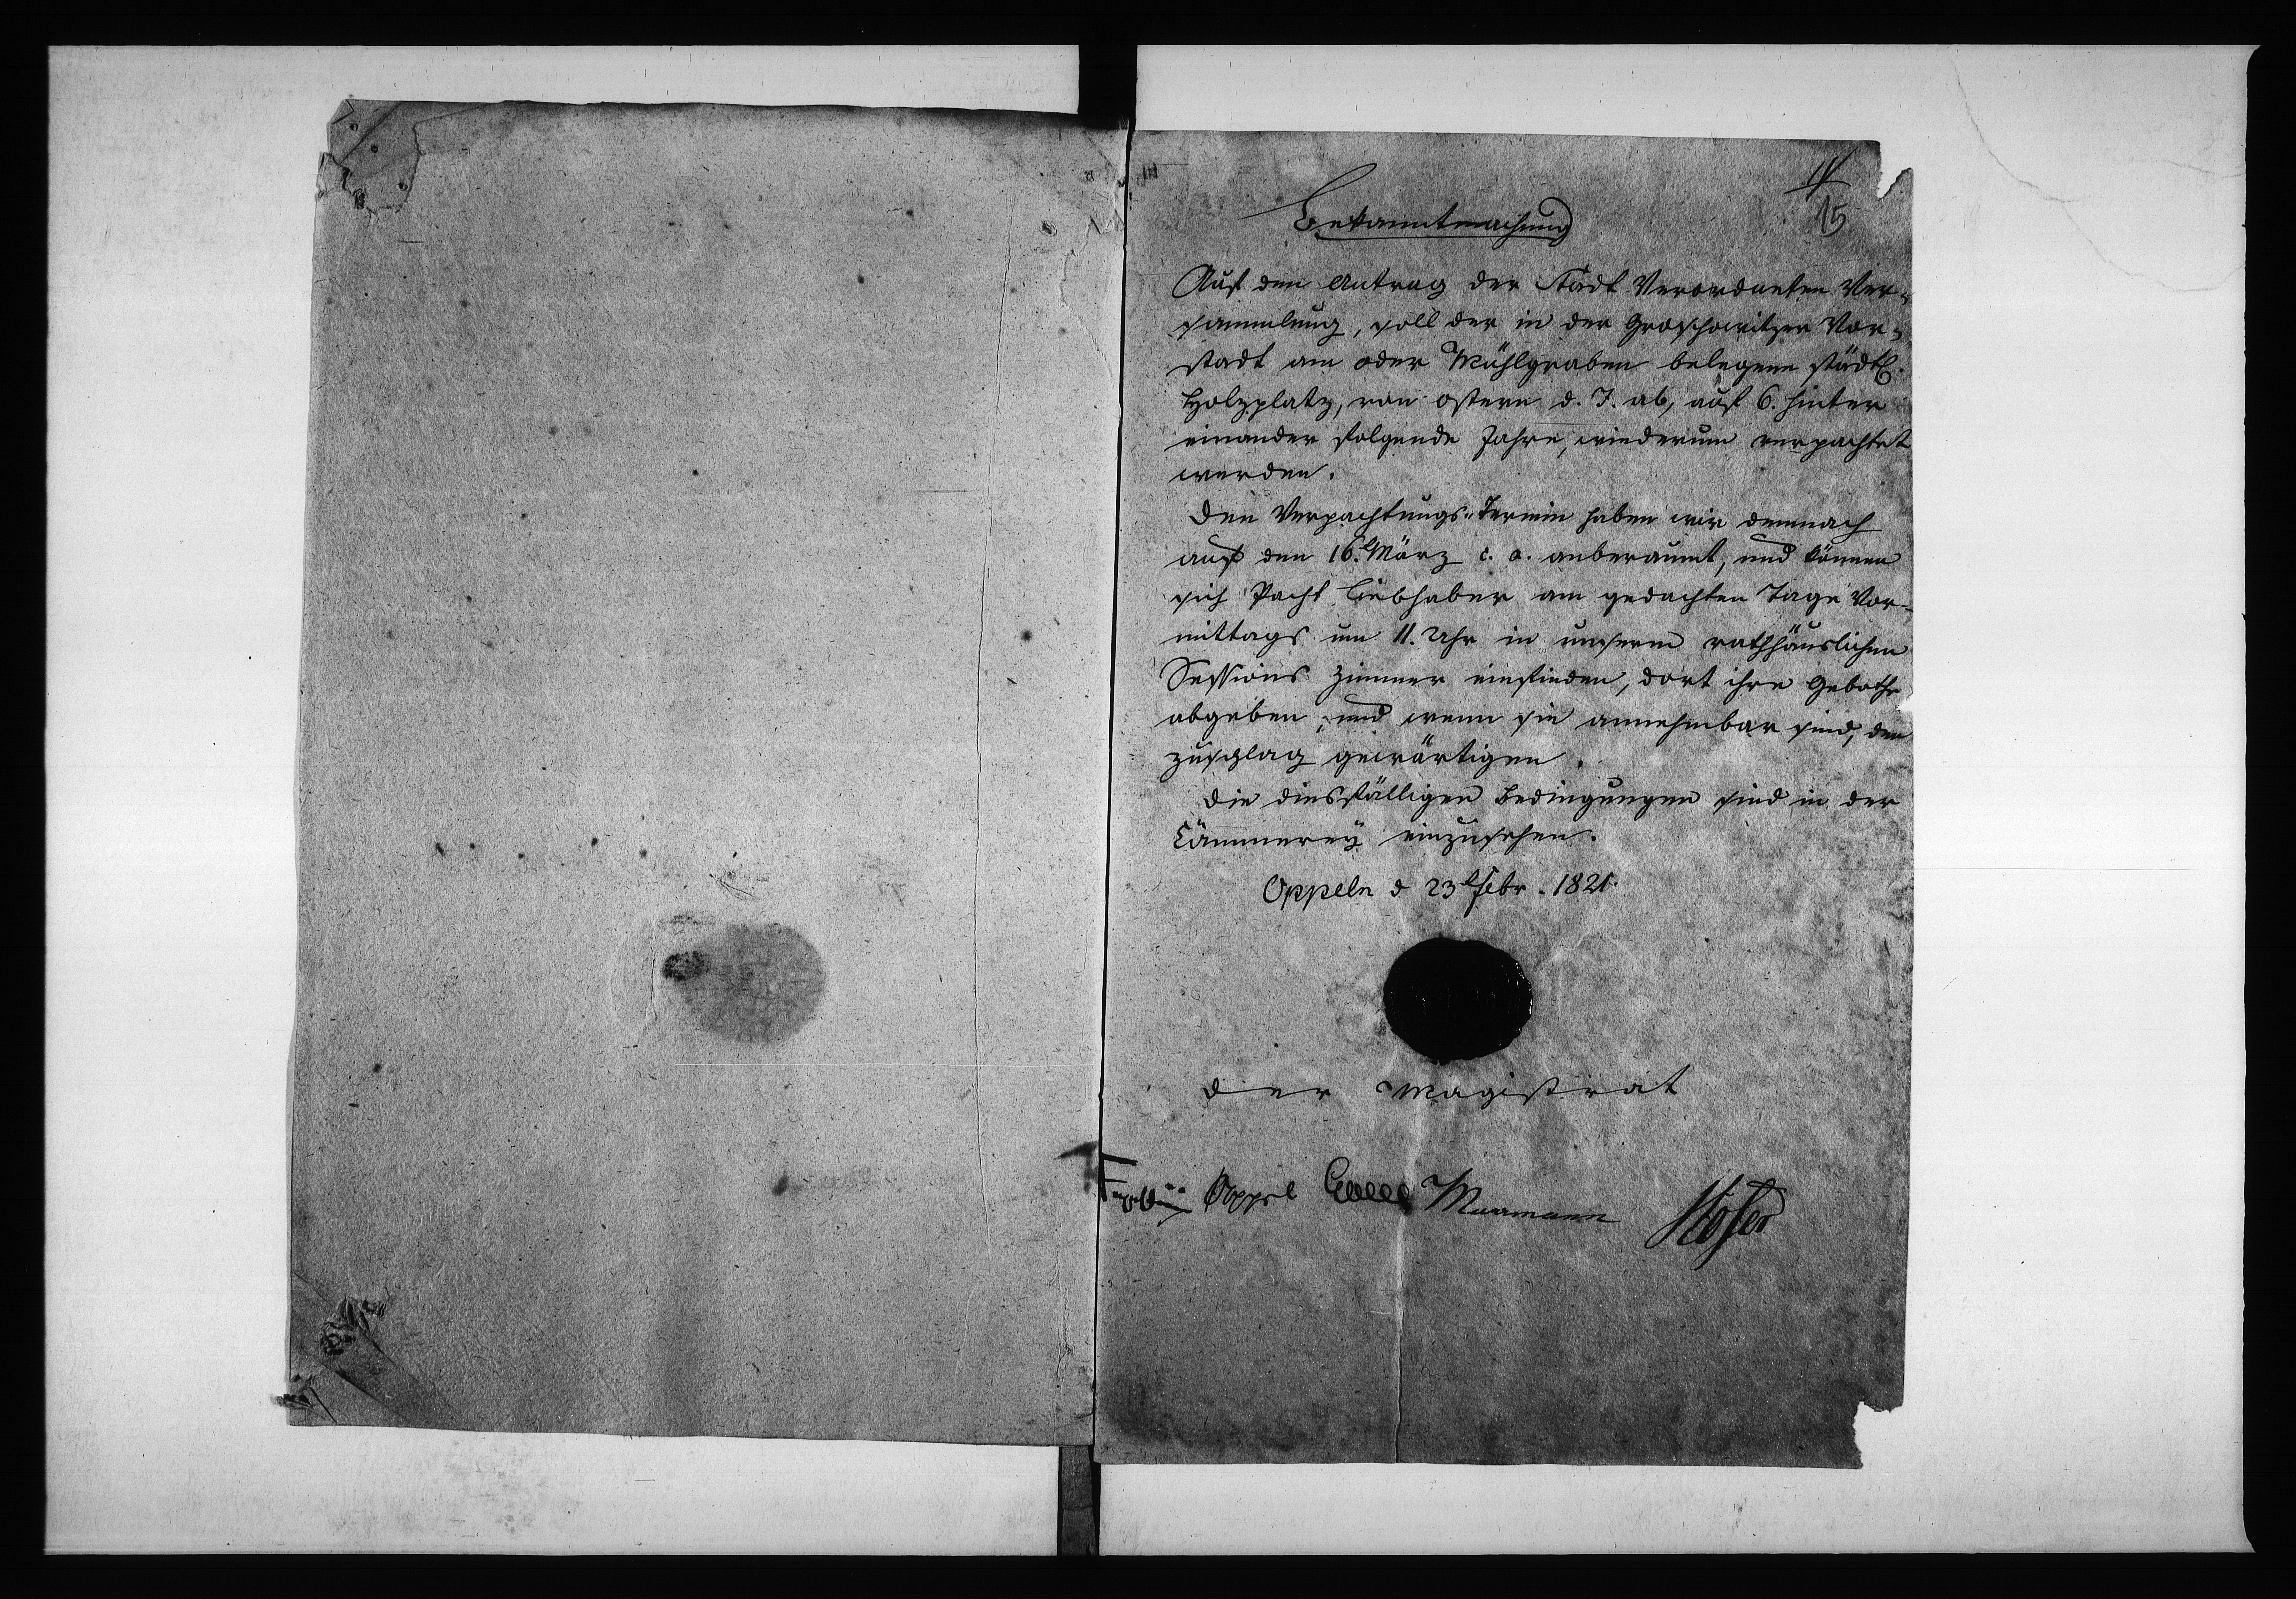 15
Bekanntmachung
Auf den Antrag der Stadt Verordneten Ver-
sammlung, soll der in der Groschowitzer Vor-
stadt am oder Mühlgraben belegene städtl.
Holzplatz, von Ostern d. J. ab, auf 6. hinter
einander folgende Jahre, wiederum verpachtet
werden.
Den Verpachtungs-Termin haben wir demnach
auf den 16t März c. a. anberaumt, und können
sich Pacht Liebhaber am gedachten Tage Vor-
mittags um 11. Uhr in unserm rathhäuslichen
Sessions Zimmer einfinden, dort ihre Gebothe
abgeben, und wenn sie annehmbar sind, den
Zuschlag gewärtigen.
Die diesfälligen Bedingungen sind in der
Cämmerey einzusehen.
Oppeln d 23t Febr. 1821.
Der Magistrat
Moser